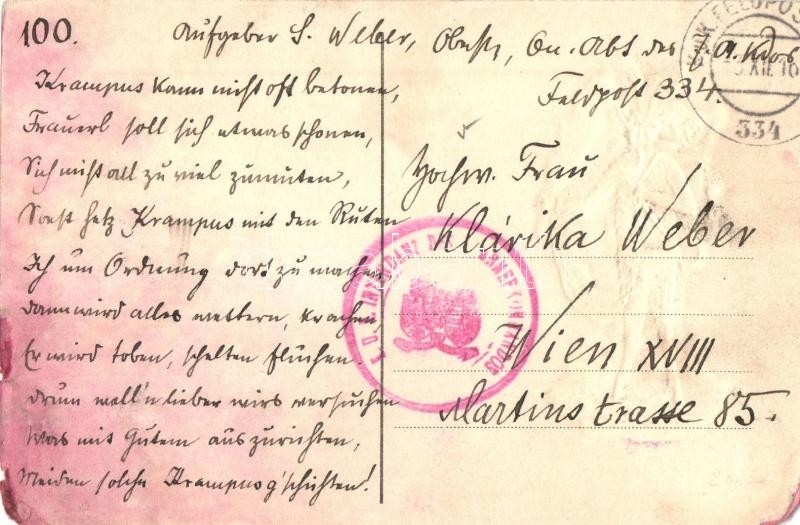 100.
Aufgeber S. Weber, Oberstl, Qu. Abt des 7. A. Kdos
Feldpost 334.
K.u.K. FELDPOST
XII. 16
334
Krampus kann nicht oft betonen,
Frauerl soll sich etwas schonen,
Sich nicht all zu viel zumuten,
Sonst hetz Krampus mit den Ruten
Ich um Ordnung dort zu machen,
dann wird alles wettern, krachen,
Er wird toben, schelten fluchen.
drum woll'n lieber wirs versuchen
Was mit Gutem auszurichten,
Meiden solche Krampusg'schichten!
Hochw. Frau
Klárika Weber
Wien XVIII
Martinstrasse 85.